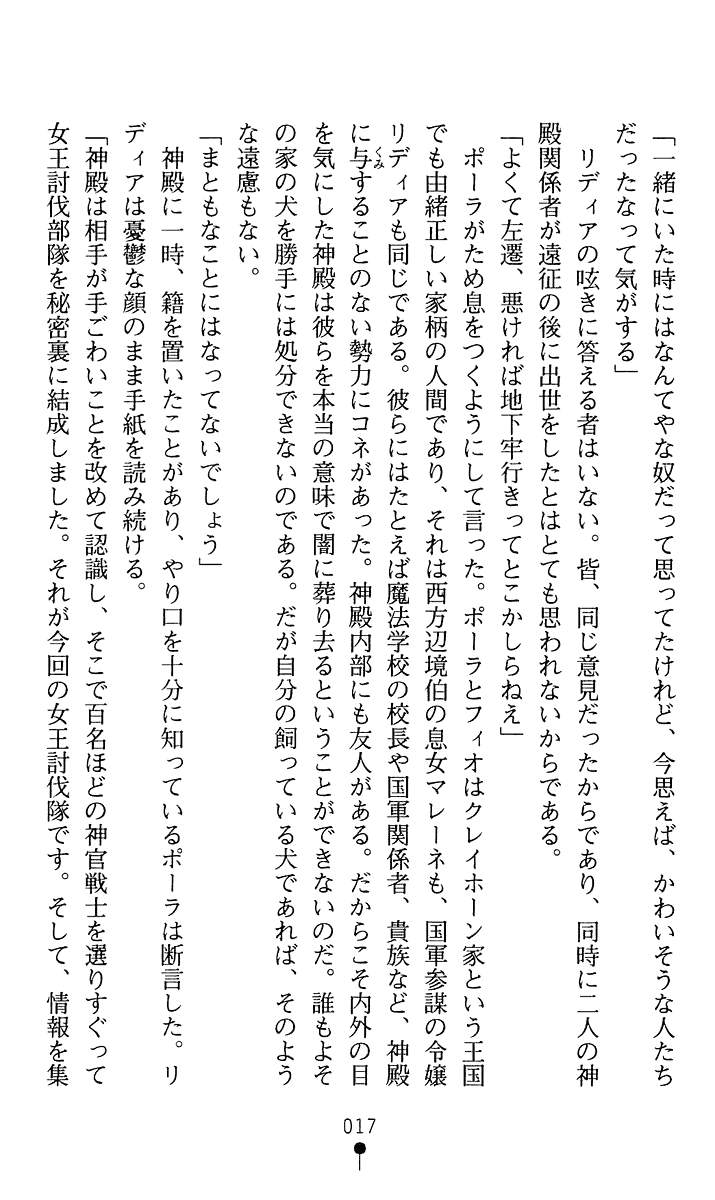 「一緒にいた時にはなんてやな奴だって思ってたけれど、今思えば、かわいそうな人たち
だったなって気がする」
　リディアの呟きに答える者はいない。皆、同じ意見だったからであり、同時に二人の神
殿関係者が遠征の後に出世をしたとはとても思われないからである。
「よくて左遷、悪ければ地下牢行きってとこかしらねえ」
　ポーラがため息をつくようにして言った。ポーラとフィオはクレイホーン家という王国
でも由緒正しい家柄の人間であり、それは西方辺境伯の息女マレーネも、国軍参謀の令嬢
リディアも同じである。彼らにはたとえば魔法学校の校長や国軍関係者、貴族など、神殿
に与くみすることのない勢力にコネがあった。神殿内部にも友人がある。だからこそ内外の目
を気にした神殿は彼らを本当の意味で闇に葬り去るということができないのだ。誰もよそ
の家の犬を勝手には処分できないのである。だが自分の飼っている犬であれば、そのよう
な遠慮もない。
「まともなことにはなってないでしょう」
　神殿に一時、籍を置いたことがあり、やり口を十分に知っているポーラは断言した。リ
ディアは憂鬱な顔のまま手紙を読み続ける。
「神殿は相手が手ごわいことを改めて認識し、そこで百名ほどの神官戦士を選りすぐって
女王討伐部隊を秘密裏に結成しました。それが今回の女王討伐隊です。そして、情報を集
017